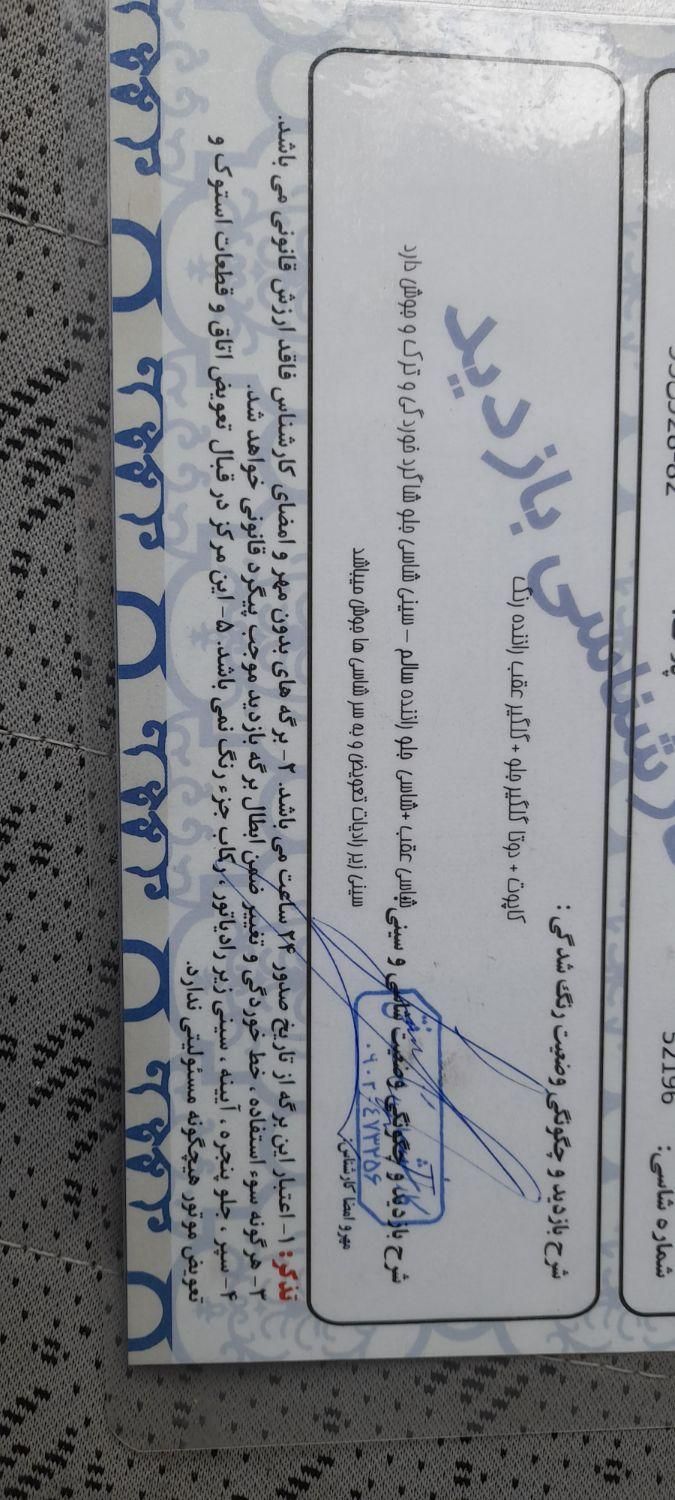 شماره شاسی:
52196
کارشناسی بازدید
شرح بازدید و چگونگی وضعیت رنگ شدگی :
کاپوت + دوتا گلگیر جلو + گلگیر عقب راننده رنگ
شرح بازدید و چگونگی وضعیت شاسی و سینی
شاسی عقب +شاسی جلو راننده سالم – سینی شاسی جلو شاگرد خوردگی و ترک و جوش دارد
سینی زیر رادیات تعویض و به سر شاسی ها جوش میباشد
مهر و امضا کارشناس:
تذکر: ۱- اعتبار این برگه از تاریخ صدور ۲۴ ساعت می باشد. ۲- برگه های بدون مهر و امضای کارشناس فاقد ارزش قانونی می باشد.
۳- هرگونه سوء استفاده، خط خوردگی و تغییر ضمن ابطال برگه بازدید موجب پیگرد قانونی خواهد شد.
۴- سپر، جلو پنجره، آیینه، سینی زیر رادیاتور، رکاب جزء رنگ نمی باشد. ۵- این مرکز در قبال تعویض اتاق و قطعات استوک و
تعویض موتور هیچگونه مسئولیتی ندارد.